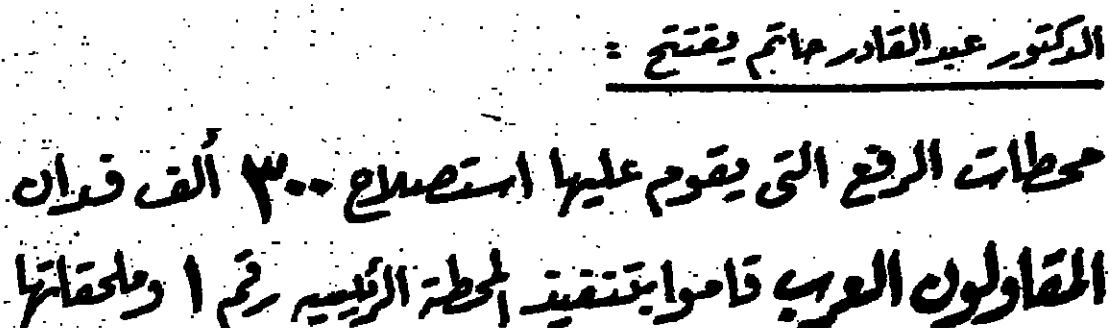 الدكتور عبدالقادر حاتم يفتتح :
محطات الرفع التى يقوم عليها استصلاح ٣٠٠ ألف فدان
المقاولون العرب قاموا بتنفيذ المحطة الرئيسيه رقم ١ وملحقاتها